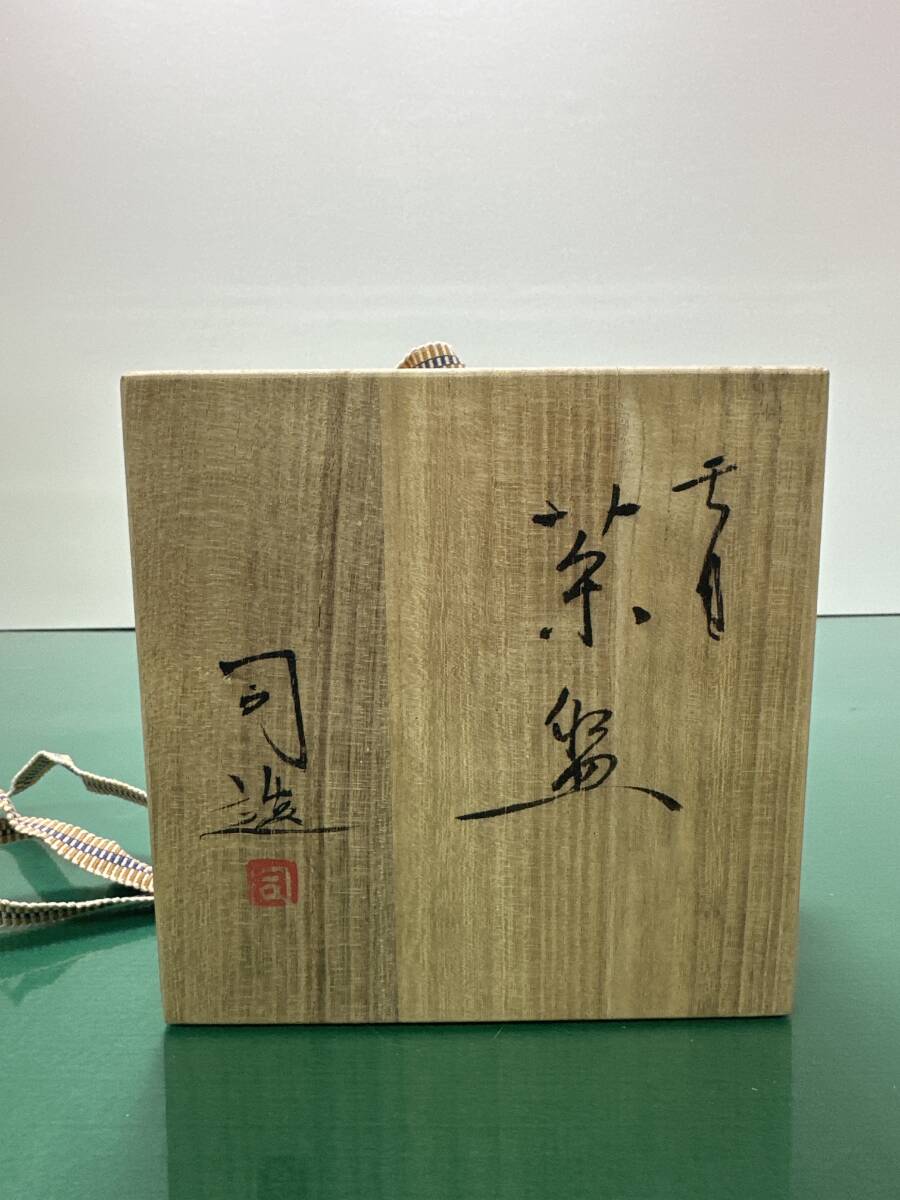 青
茶盌
司造
司